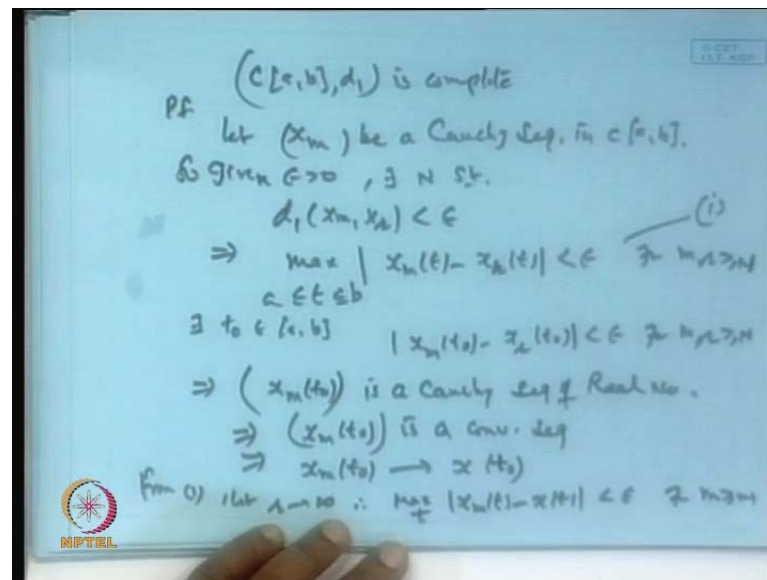 (C[a,b], d₁) is complete
Pf
Let (xₘ) be a Cauchy Seq. in C[a,b].
So given ε>0, ∃ N s.t.
d₁(xₘ, xᵣ) < ε
(i)
⇒ max | xₘ(t) - xᵣ(t)| < ε for m, r ≥, N
a ≤ t ≤ b
∃ t₀ ∈ [a,b] | xₘ(t₀) - xᵣ(t₀)| < ε for m, r ≥, N
⇒ (xₘ(t₀)) is a Cauchy Seq of Real No.
⇒ (xₘ(t₀)) is a conv. Seq
⇒ xₘ(t₀) → x(t₀)
From (i) let r→∞ ∴ Max |xₘ(t) - x(t)| < ε for m ≥ m
t
NPTEL